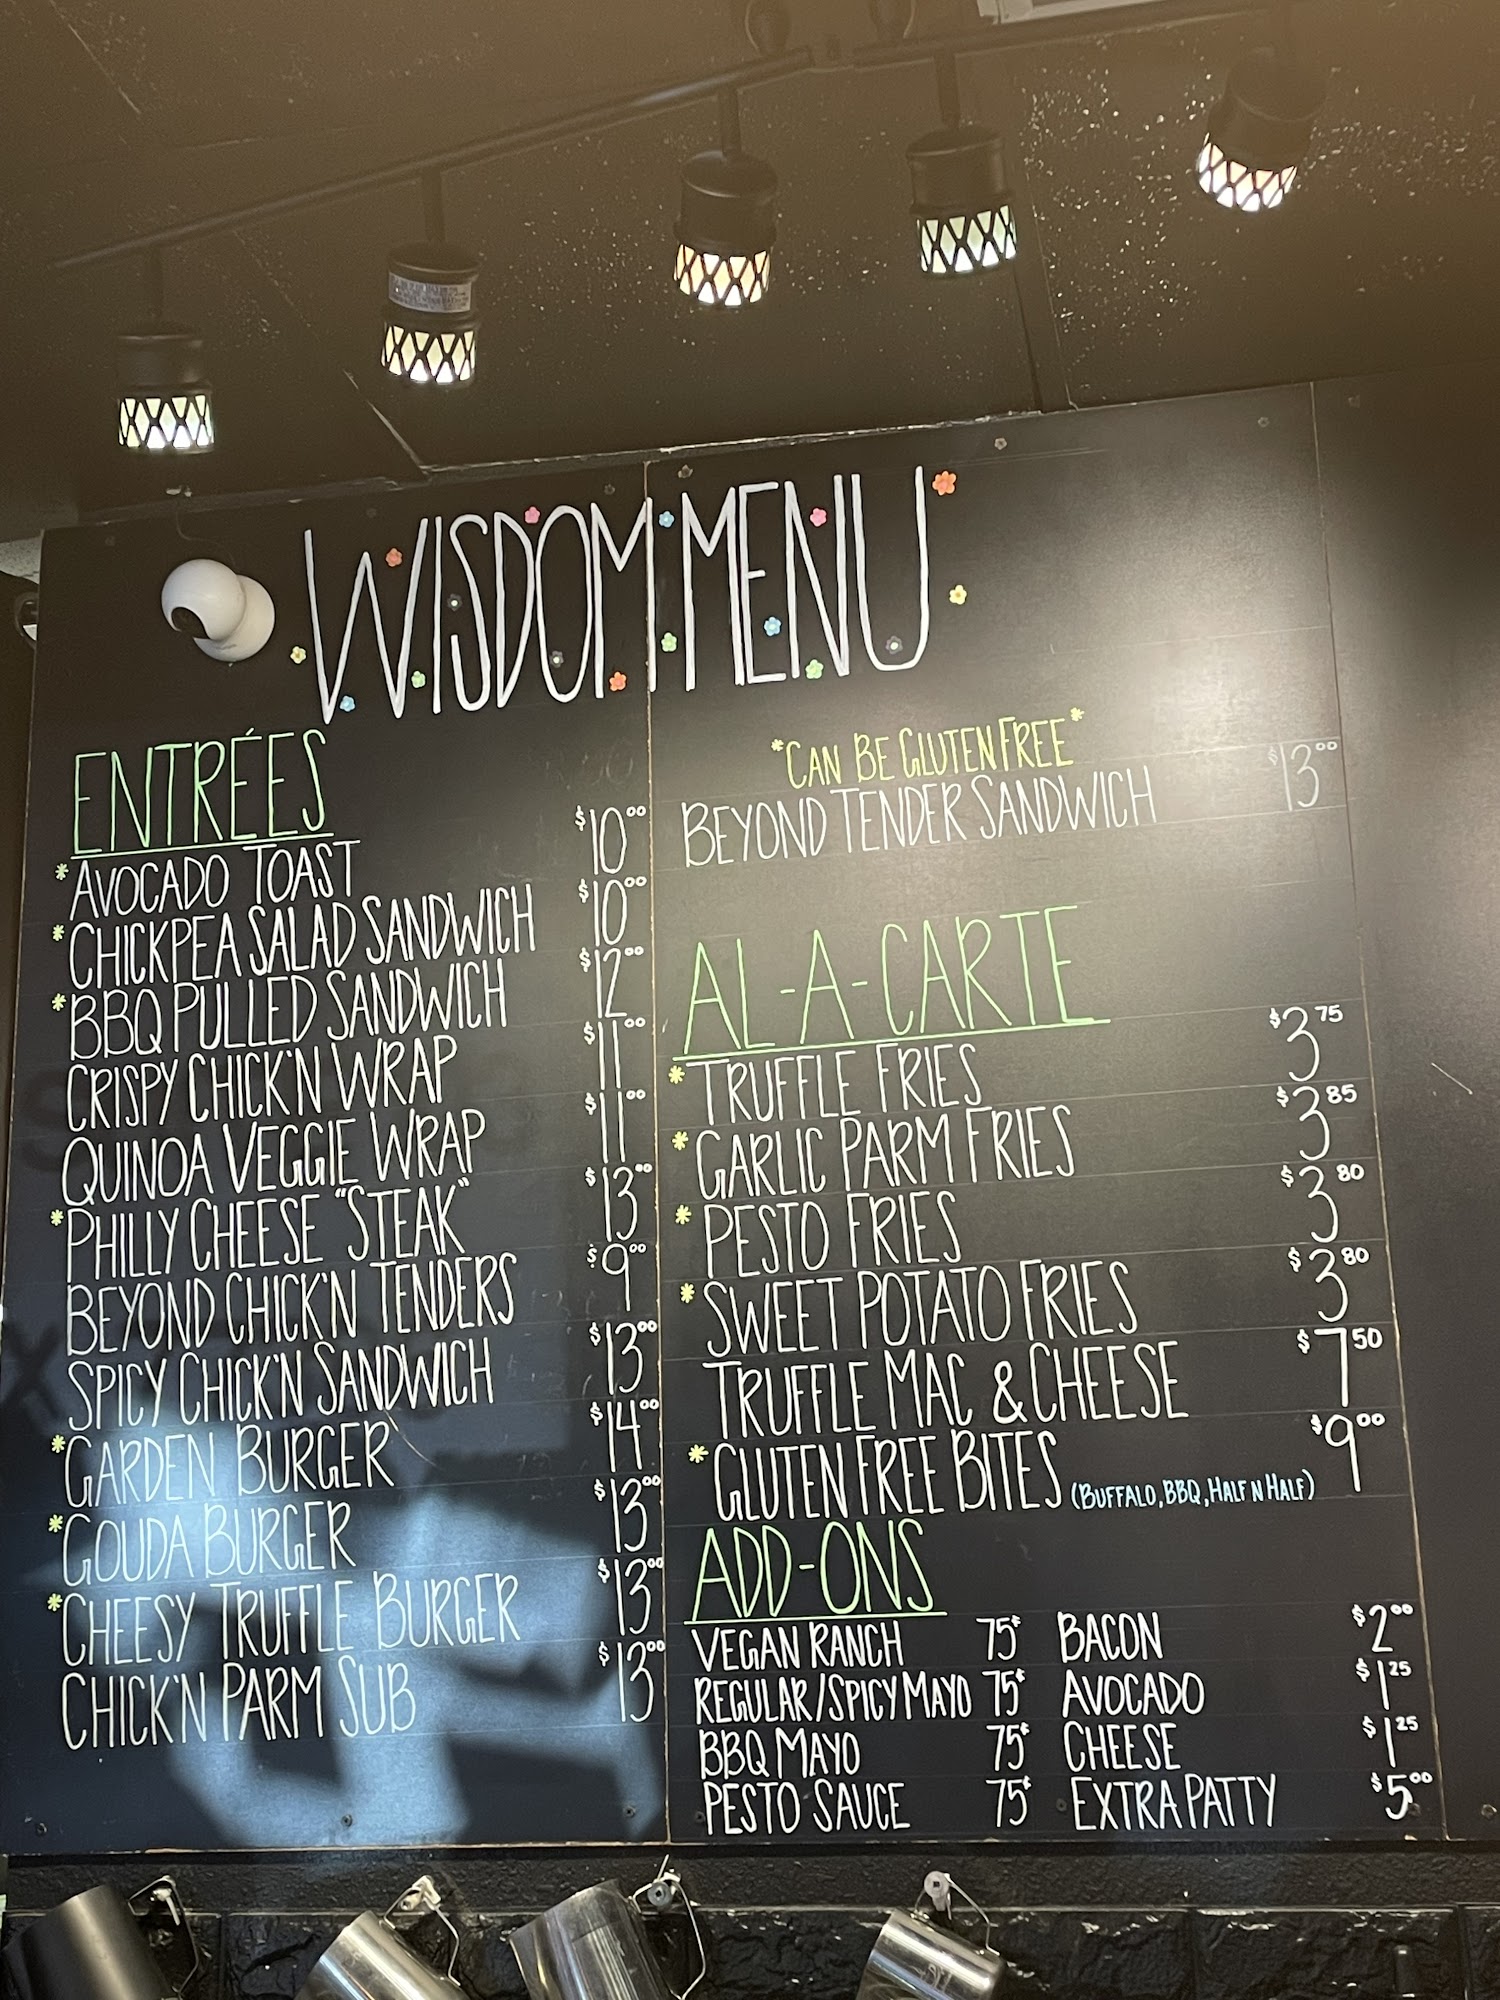 WISDOM MENU
ENTRÉES
*AVOCADO TOAST $10.00
*CHICKPEA SALAD SANDWICH $10.00
*BBQ PULLED SANDWICH $12.00
CRISPY CHICK'N WRAP $11.00
QUINOA VEGGIE WRAP $11.00
*PHILLY CHEESE "STEAK" $13.00
BEYOND CHICK'N TENDERS $9.00
SPICY CHICK'N SANDWICH $13.00
*GARDEN BURGER $14.00
*GOUDA BURGER $13.00
*CHEESY TRUFFLE BURGER $13.00
CHICK'N PARM SUB $13.00
*CAN BE GLUTEN FREE*
BEYOND TENDER SANDWICH $13.00
AL-A-CARTE
*TRUFFLE FRIES $3.75
*GARLIC PARM FRIES $3.85
*PESTO FRIES $3.80
*SWEET POTATO FRIES $3.80
TRUFFLE MAC & CHEESE $7.50
*GLUTEN FREE BITES (BUFFALO, BBQ, HALF N HALF) $9.00
ADD-ONS
VEGAN RANCH 75¢ BACON $2.00
REGULAR/SPICY MAYO 75¢ AVOCADO $1.25
BBQ MAYO 75¢ CHEESE $1.25
PESTO SAUCE 75¢ EXTRA PATTY $5.00